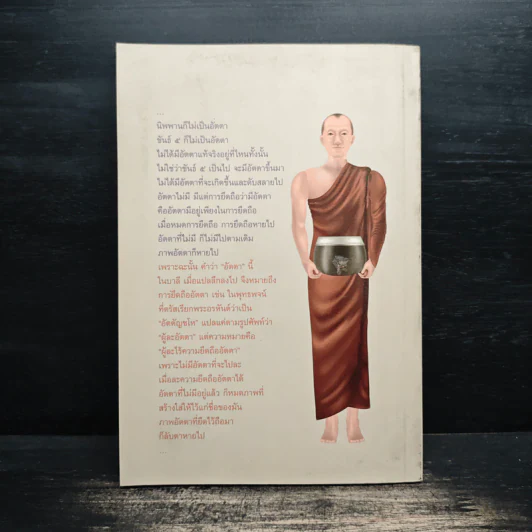 ...
นิพพานก็ไม่เป็นอัตตา
ขันธ์ ๕ ก็ไม่เป็นอัตตา
ไม่ได้มีอัตตาแท้จริงอยู่ที่ไหนทั้งนั้น
ไม่ใช่ว่าขันธ์ ๕ เป็นไป จะมีอัตตาขึ้นมา
ไม่ได้มีอัตตาที่จะเกิดขึ้นและดับสลายไป
อัตตาไม่มี มีแต่การยึดถือว่ามีอัตตา
คืออัตตามีอยู่เพียงในการยึดถือ
เมื่อหมดการยึดถือ การยึดถือหายไป
อัตตาที่ไม่มี ก็ไม่มีไปตามเดิม
ภาพอัตตาก็หายไป
เพราะฉะนั้น คำว่า "อัตตา" นี้
ในบาลี เมื่อแปลลึกลงไป จึงหมายถึง
การยึดถืออัตตา เช่น ในพุทธพจน์
ที่ตรัสเรียกพระอรหันต์ว่าเป็น
"อัตตัญชโห" แปลแต่ตามรูปศัพท์ว่า
"ผู้ละอัตตา" แต่ความหมายคือ
"ผู้ละไร้ความยึดถืออัตตา"
เพราะไม่มีอัตตาที่จะไปละ
เมื่อละความยึดถืออัตตาได้
อัตตาที่ไม่มีอยู่แล้ว ก็หมดภาพที่
สร้างใส่ให้ไว้แก่ชื่อของมัน
ภาพอัตตาที่ยึดไว้ถือมา
ก็ลับตาหายไป
...